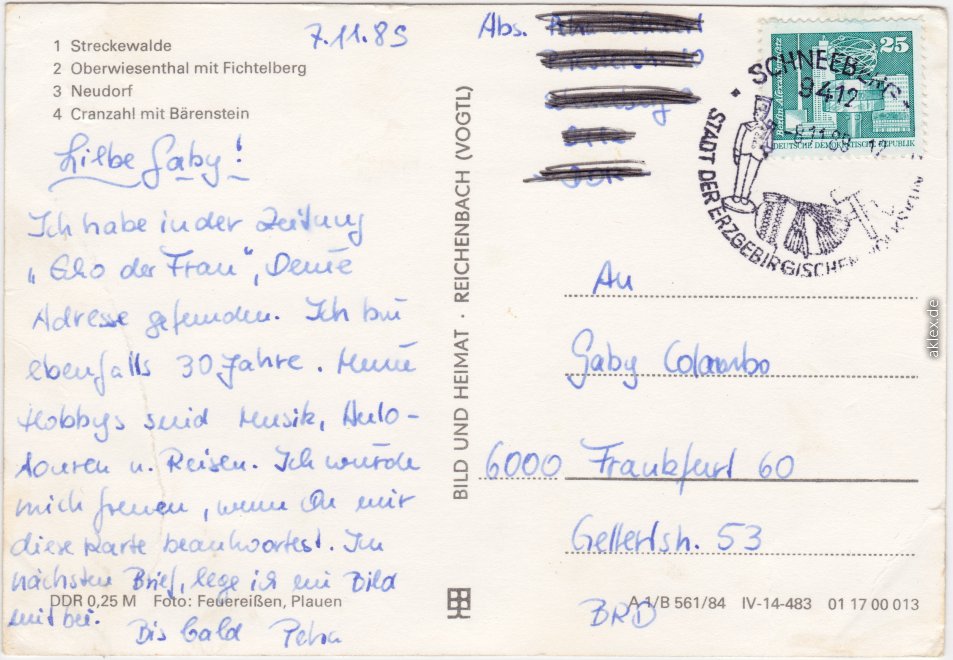 1 Streckewalde
2 Oberwiesenthal mit Fichtelberg
3 Neudorf
4 Cranzahl mit Bärenstein
7.11.89
Liebe Gaby!
Ich habe in der Zeitung
„Echo der Frau", Deine
Adresse gefunden. Ich bin
ebenfalls 30 Jahre. Meine
Hobbys sind Musik, Auto-
touren u. Reisen. Ich würde
mich freuen, wenn Du mir
diese Karte beantwortest. Im
nächsten Brief, lege ich ein Bild
mit bei.
Bis bald Petra
DDR 0,25 M Foto: Feuereißen, Plauen
BILD UND HEIMAT · REICHENBACH (VOGTL)
Abs.
25
Berlin-Alexanderplatz
DEUTSCHE DEMOKRATISCHE REPUBLIK
SCHNEEBERG
9412
STADT DER ERZGEBIRGISCHEN
An
Gaby Colombo
6000 Frankfurt 60
Gellertstr. 53
BRD
A 1/B 561/84 IV-14-483 01 17 00 013
aklex.de